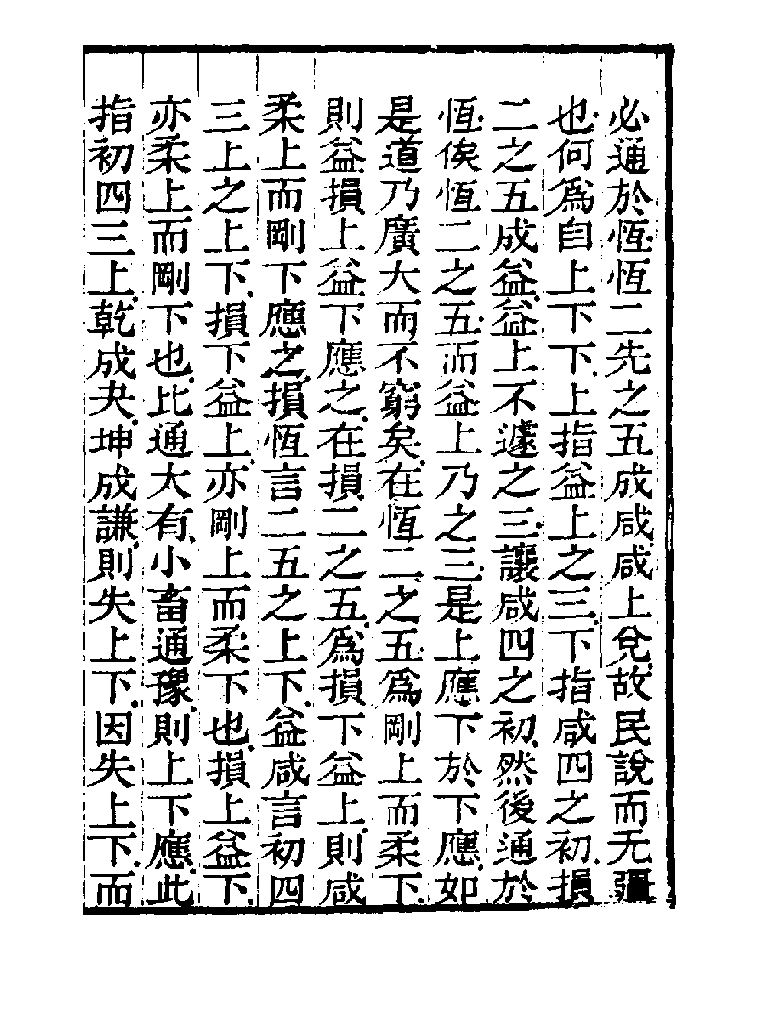 必通於恆恆二先之五成咸咸上兌故民說而无疆
也何爲自上下下上指益上之三下指咸四之初損
二之五成益益上不遽之三讓咸四之初然後通於
恆俟恆二之五而益上乃之三是上應下於下應如
是道乃廣大而不窮矣在恆二之五爲剛上而柔下
則益損上益下應之在損二之五爲損下益上則咸
柔上而剛下應之損恆言二五之上下益咸言初四
三上之上下損下益上亦剛上而柔下也損上益下
亦柔上而剛下也比通大有小畜通豫則上下應此
指初四三上乾成夬坤成謙則失上下因失上下而